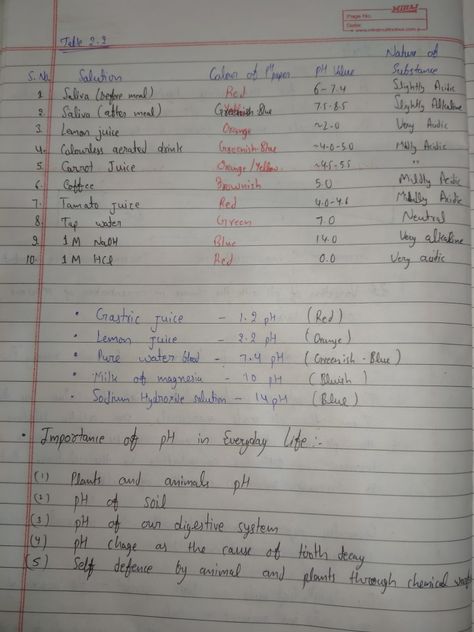 MIHIM
Page No.
Date:
Table 2.2
S. No. Solution Colour of pH paper pH Value Nature of Substance
1. Saliva (before meal) Red 6 - 7.4 Slightly Acidic
2. Saliva (after meal) Greenish Blue 7.5-8.5 Slightly Alkaline
3. Lemon juice Orange ~2-0 Very Acidic
4. Colourless aerated drink Greenish-Blue ~4.0-5.0 Mildly Acidic
5. Carrot Juice Orange/Yellow ~4.5-5.5 "
6. Coffee Brownish 5.0 Mildly Acidic
7. Tamato juice Red 4.0-4.6 Mildly Acidic
8. Tap water Green 7.0 Neutral
9. 1 M NaOH Blue 14.0 Very alkaline
10. 1 M HCl Red 0.0 Very acidic
• Gastric juice - 1.2 pH (Red)
• Lemon juice - 2.2 pH (Orange)
• Pure water blood - 7.4 pH (Greenish-Blue)
• Milk of magnesia - 10 pH (Bluish)
• Sodium Hydroxise solution - 14 pH (Blue)
• Importance of pH in Everyday Life :-
(1) Plants and animals pH
(2) pH of soil
(3) pH of our digestive system
(4) pH chage as the cause of tooth decay
(5) Self defence by animal and plants through chemical